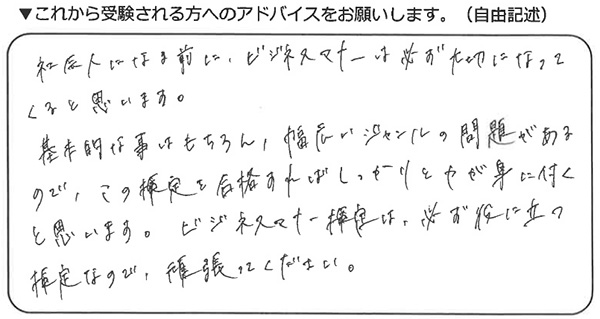 ▼これから受験される方へのアドバイスをお願いします。（自由記述）
社会人になる前に、ビジネスマナーは必ず大切になって
くると思います。
基本的な事はもちろん、幅広いジャンルの問題がある
ので、この検定を合格すればしっかりと力が身に付く
と思います。ビジネスマナー検定は、必ず役に立つ
検定なので、頑張ってください。